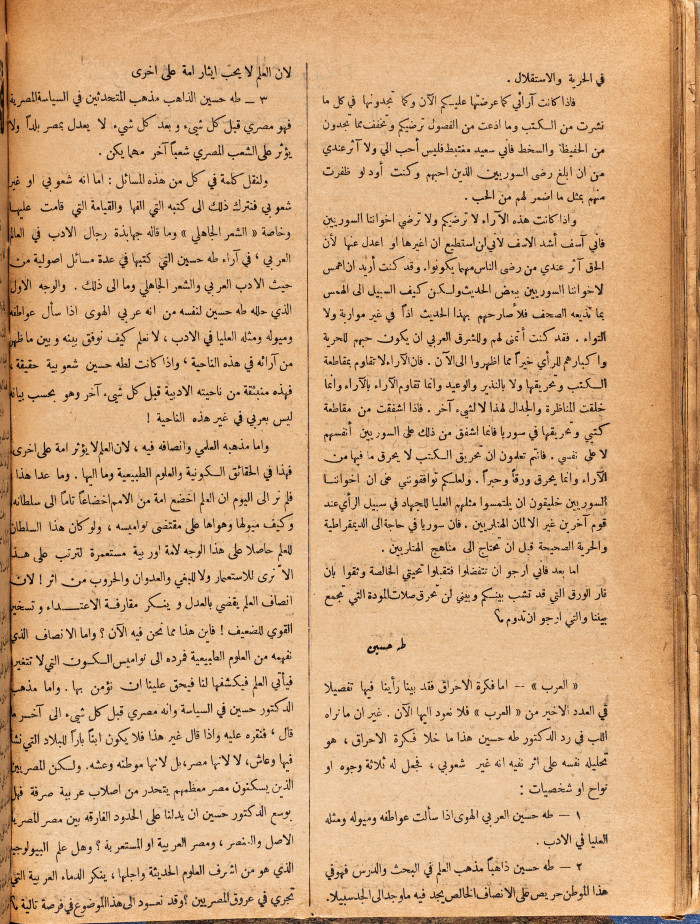 في الحرية والاستقلال .
فاذا كانت آرائي كما عرضتها عليكم الآن وكما تجدونها في كل ما
نشرت من الكتب وما اذعت من الفصول ترضيكم وتخفف مما تجدون
من الحفيظة والسخط فاني سعيد مغتبط فليس أحب الي ولا آثر عندي
من ان ابلغ رضى السوريين الذين احبهم وكنت أود لو ظفرت
منهم بمثل ما اضمر لهم من الحب .
واذا كانت هذه الآراء لا ترضيكم ولا ترضي اخواننا السوريين
فاني آسف أشد الاسف لاني لن استطيع ان اغيرها او اعدل عنها لأن
الحق آثر عندي من رضى الناس مهما يكونوا. وقد كنت أريد ان اهمس
لاخواننا السوريين ببعض الحديث ولكن كيف السبيل الى الهمس
بما تذيعه الصحف فلأصارحهم بهذا الحديث اذاً في غير مواربة ولا
التواء . فقد كنت أتمنى لهم وللشرق العربي ان يكون حبهم للحرية
واكبارهم للرأي خيراً مما اظهروا الى الآن . فان الآراء لا تقاوم بمقاطعة
الكتب وتحريقها ولا بالنذير والوعيد وانما تقاوم الآراء بالآراء وانما
خلقت المناظرة والجدال لهذا لا لشيء آخر . فاذا اشفقت من مقاطعة
كتبي وتحريقها في سوريا فانما اشفق من ذلك على السوريين أنفسهم
لا على نفسي . فانتم تعلمون ان تحريق الكتب لا يحرق ما فيها من
الآراء وانما يحرق ورقاً وحبراً . ولعلكم توافقونني على ان اخواننا
السوريين خليقون ان يلتمسوا مثلهم العليا للجهاد في سبيل الرأي عند
قوم آخرين غير الالمان الهتلريين . فان سوريا في حاجة الى الديمقراطية
والحرية الصحيحة قبل ان تحتاج الى مناهج الهتلريين .
اما بعد فاني ارجو ان تتفضلوا فتقبلوا تحيتي الخالصة وثقوا بان
نار الورق التي قد تشب بينكم وبيني لن تحرق صلات المودة التي تجمع
بيننا والتي ارجو ان تدوم
طه حسين
« العرب » — اما فكرة الاحراق فقد بينا رأينا فيها تفصيلا
في العدد الاخير من « العرب » فلا نعود اليها الآن . غير ان ما نراه
اللب في رد الدكتور طه حسين هذا ما خلا فكرة الاحراق ، هو
تحليله نفسه على اثر نفيه انه غير شعوبي ، فجعل له ثلاثة وجوه او
نواح او شخصيات :
١ — طه حسين العربي الهوى اذا سألت عواطفه وميوله ومثله
العليا في الادب .
٢ — طه حسين ذاهباً مذهب العلم في البحث والدرس فهو في
هذا الموطن حريص على الانصاف الخالص يجد فيه ما وجد الى الجد سبيلا.
لان العلم لا يحب ايثار امة على اخرى
٣ — طه حسين الذاهب مذهب المتحدثين في السياسة المصرية
فهو مصري قبل كل شيء وبعد كل شيء لا يعدل بمصر بلداً ولا
يؤثر على الشعب المصري شعباً آخر مهما يكن .
ولنقل كلمة في كل من هذه المسائل : اما انه شعوبي او غير
شعوبي فنترك ذلك الى كتبه التي الفها والقيامة التي قامت عليها
وخاصة « الشعر الجاهلي » وما قاله جهابذة رجال الادب في العالم
العربي ، في آراء طه حسين التي كتبها في عدة مسائل اصولية من
حيث الادب العربي والشعر الجاهلي وما الى ذلك . والوجه الاول
الذي حلله طه حسين لنفسه من انه عربي الهوى اذا سأل عواطفه
وميوله ومثله العليا في الادب ، لا نعلم كيف نوفق بينه وبين ما ظهر
من آرائه في هذه الناحية ، واذا كانت لطه حسين شعوبية حقيقة ،
فهذه منبثقة من ناحيته الادبية قبل كل شيء آخر وهو بحسب بيانه
ليس بعربي في غير هذه الناحية !
واما مذهبه العلمي وانصافه فيه ، لان العلم لا يؤثر امة على اخرى،
فهذا في الحقائق الكونية والعلوم الطبيعية وما اليها . وما عدا هذا
فلم نر الى اليوم ان العلم اخضع امة من الامم اخضاعاً تاماً الى سلطانه
وكيف ميولها وهواها على مقتضى نواميسه ، ولو كان هذا السلطان
للعلم حاصلا على هذا الوجه لامة اوربية مستعمرة لترتب على هذا
الا نرى للاستعمار ولا للبغي والعدوان والحروب من اثر ! لان
انصاف العلم يقضي بالعدل وينكر مقارفة الاعتداء وتسخير
القوي للضعيف ! فاين هذا مما نحن فيه الآن ؟ واما الانصاف الذي
نفهمه من العلوم الطبيعية فمرده الى نواميس الكون التي لا تتغير
فيأتي العلم فيكشفها لنا فيحق علينا ان نؤمن بها . واما مذهب
الدكتور حسين في السياسة وانه مصري قبل كل شيء الى آخر ما
قال ، فنقره عليه واذا قال غير هذا فلا يكون ابناً باراً للبلاد التي نشأ
فيها وعاش، لا لانها مصر، بل لانها موطنه وعشه. ولكن المصريين
الذين يسكنون مصر معظمهم يتحدر من اصلاب عربية صرفة فهل
بوسع الدكتور حسين ان يدلنا على الحدود الفارقة بين مصر المصرية
الاصل والعنصر ، ومصر العربية او المستعربة ؟ وهل علم البيولوجيا
الذي هو من اشرف العلوم الحديثة واجلها ، ينكر الدماء العربية التي
تجري في عروق المصريين ؟ وقد نعود الى هذا الموضوع في فرصة تالية